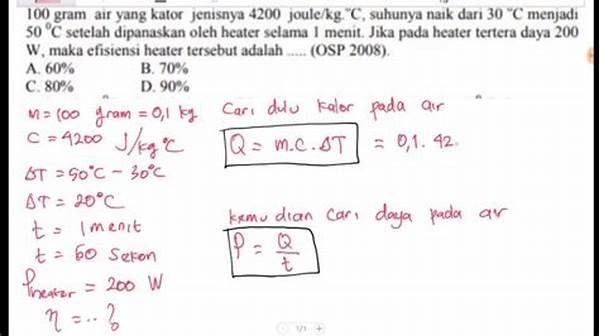 100 gram air yang kator jenisnya 4200 joule/kg.°C, suhunya naik dari 30 °C menjadi
50 °C setelah dipanaskan oleh heater selama 1 menit. Jika pada heater tertera daya 200
W, maka efisiensi heater tersebut adalah ..... (OSP 2008).
A. 60% B. 70%
C. 80% D. 90%
m = 100 gram = 0,1 kg
C = 4200 J/kg°C
ΔT = 50°C - 30°C
ΔT = 20°C
t = 1 menit
t = 60 sekon
Pheater = 200 W
η = .. ?
Cari dulu kalor pada air
Q = m.c.ΔT = 0,1. 42.
kemudian cari daya pada air
P = Q/t
1/1 +